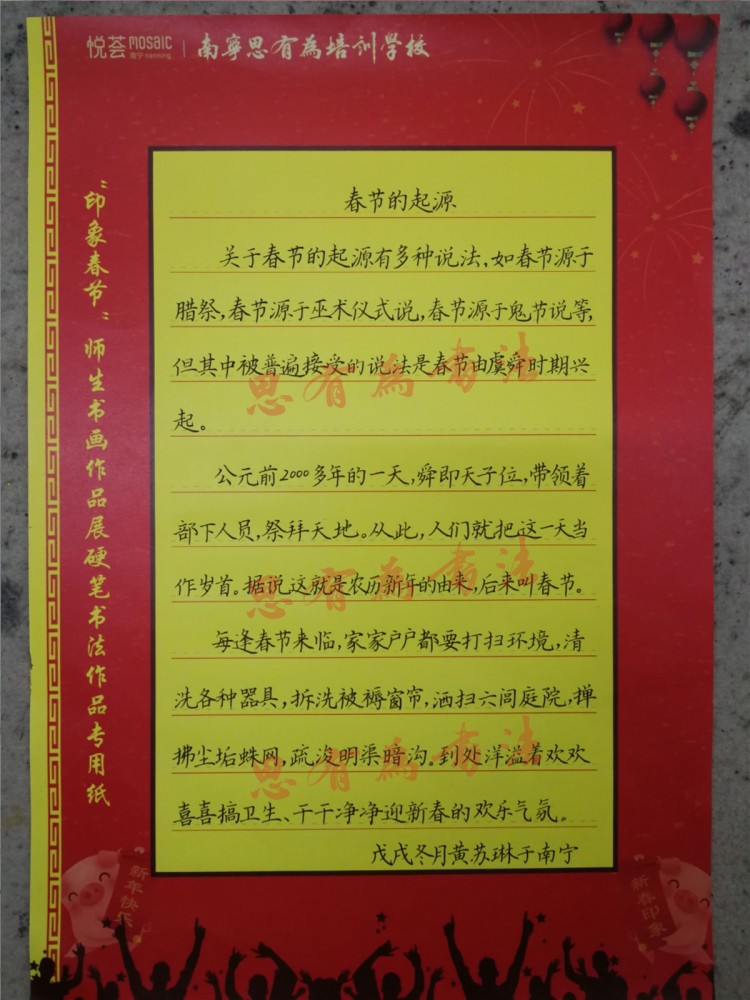 悦荟 mosaic 南宁 nanning | 南寧思有為培训学校
"印象春节"师生书画作品展硬笔书法作品专用纸
春节的起源
关于春节的起源有多种说法,如春节源于
腊祭,春节源于巫术仪式说,春节源于鬼节说等,
但其中被普遍接受的说法是春节由虞舜时期兴
起。
公元前2000多年的一天,舜即天子位,带领着
部下人员,祭拜天地。从此,人们就把这一天当
作岁首。据说这就是农历新年的由来,后来叫春节。
每逢春节来临,家家户户都要打扫环境,清
洗各种器具,拆洗被褥窗帘,洒扫六闾庭院,掸
拂尘垢蛛网,疏浚明渠暗沟。到处洋溢着欢欢
喜喜搞卫生、干干净净迎新春的欢乐气氛。
戊戌冬月黄苏琳于南宁
思有為书法
思有為书法
思有為书法
新年快乐
新春印象